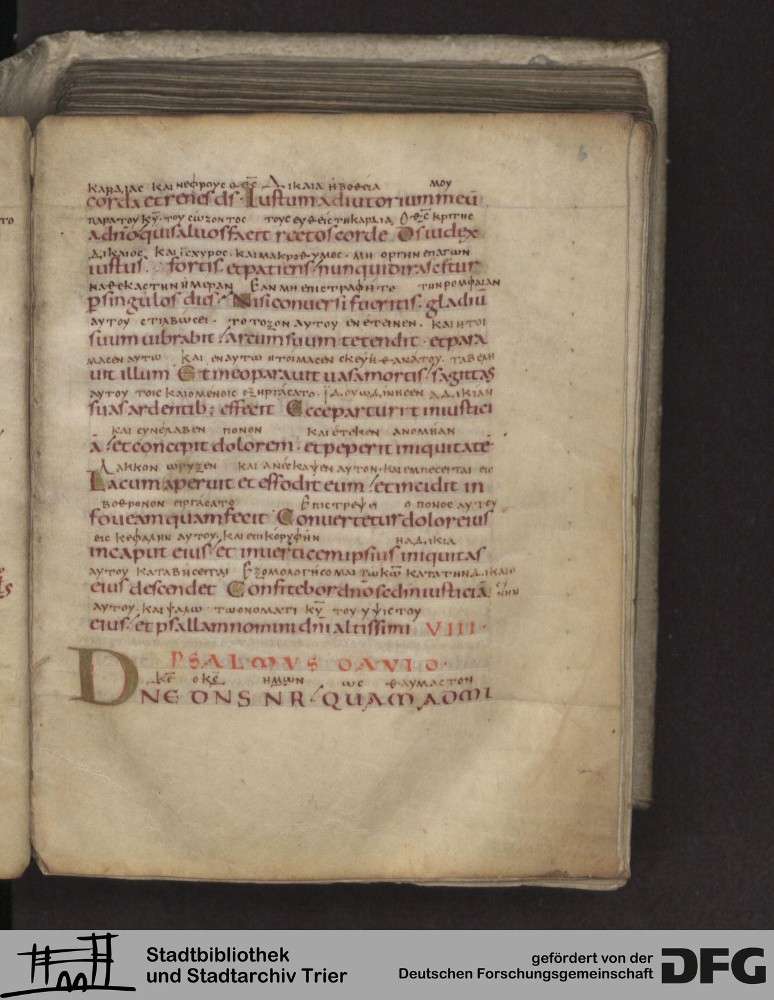 6
ΚΑΡΔΙΑΣ ΚΑΙ ΝΕΦΡΟΥΣ Ο ΘΣ ΔΙΚΑΙΑ Η ΒΟΘΕΙΑ ΜΟΥ
corda et renes ds. Iustum adiutorium meū
ΠΑΡΑ ΤΟΥ ΚΥ ΤΟΥ CΩΖΟΝΤΟC ΤΟΥC ΕΥΘΕΙC ΤΗ ΚΑΡΔΙΑ Ο ΘC ΚΡΙΤΗC
a dn̄o qui saluos facit rectos corde Ds iudex
ΔΙΚΑΙΟC ΚΑΙ ΙCΧΥΡΟC ΚΑΙ ΜΑΚΡΟΘΥΜΟC ΜΗ ΟΡΓΗΝ ΕΠΑΓΩΝ
iustus. fortis. et patiens. nunquid irascetur
ΚΑΘ ΕΚΑCΤΗΝ ΗΜΕΡΑΝ ΕΑΝ ΜΗ ΕΠΙCΤΡΑΦΗΤΟ ΤΗΝ ΡΟΜΦΑΙΑΝ
p singulos dies. Nisi conuersi fueritis. gladiū
ΑΥΤΟΥ CΤΙΛΒΩCΕΙ ΤΟ ΤΟΞΟΝ ΑΥΤΟΥ ΕΝΕΤΕΙΝΕΝ. ΚΑΙ ΗΤΟΙ
suum uibrabit. arcum suum tetendit. et para
ΜΑCΕΝ ΑΥΤΩ ΚΑΙ ΕΝ ΑΥΤΩ ΗΤΟΙΜΑCΕΝ CΚΕΥΗ ΘΑΝΑΤΟΥ. ΤΑ ΒΕΛΗ
uit illum Et in eo parauit uasa mortis. sagittas
ΑΥΤΟΥ ΤΟΙC ΚΑΙΟΜΕΝΟΙC ΕΞΗΡΓΑCΑΤΟ. ΑΔΙΚΙΑΝ
suas ardentib; effecit Ecce parturit iniustici
ΚΑΙ CΥΝΕΛΑΒΕΝ ΠΟΝΟΝ ΚΑΙ ΕΤΕΚΕΝ ΑΝΟΜΙΑΝ
ā. et concepit dolorem. et peperit iniquitatē
ΛΑΚΚΟΝ ΩΡΥΞΕΝ ΚΑΙ ΑΝΕCΚΑΨΕΝ ΑΥΤΟΝ. ΚΑΙ ΕΜΠΕCΕΙΤΑΙ ΕΙC
Lacum aperuit et effodit eum. et incidit in
ΒΟΘΡΟΝ ΟΝ ΕΙΡΓΑCΑΤΟ ΕΠΙCΤΡΕΨΕΙ Ο ΠΟΝΟC ΑΥΤΟΥ
foueam quam fecit Conuertetur dolor eius
ΕΙC ΚΕΦΑΛΗΝ ΑΥΤΟΥ. ΚΑΙ ΕΠΙ ΚΟΡΥΦΗΝ Η ΑΔΙΚΙΑ
in caput eius. et in uerticem ipsius iniquitas
ΑΥΤΟΥ ΚΑΤΑΒΗCΕΙΤΑΙ ΕΞΟΜΟΛΟΓΗCΟΜΑΙ ΤΩ ΚΩ ΚΑΤΑ ΤΗΝ ΔΙΚΑΙΟCΥΝΗΝ
eius descendet Confitebor dno secdm iusticiā
ΑΥΤΟΥ. ΚΑΙ ΨΑΛΩ ΤΩ ΟΝΟΜΑΤΙ ΚΥ ΤΟΥ ΥΨΙCΤΟΥ
eius. et psallam nomini dn̄i altissimi VIII.
PSALMVS DAVID.
ΚΕ Ο ΚC ΗΜΩΝ ΩC ΘΑΥΜΑCΤΟΝ
DNE DNS NR. QUAM ADMI
Stadtbibliothek
und Stadtarchiv Trier
gefördert von der
Deutschen Forschungsgemeinschaft DFG